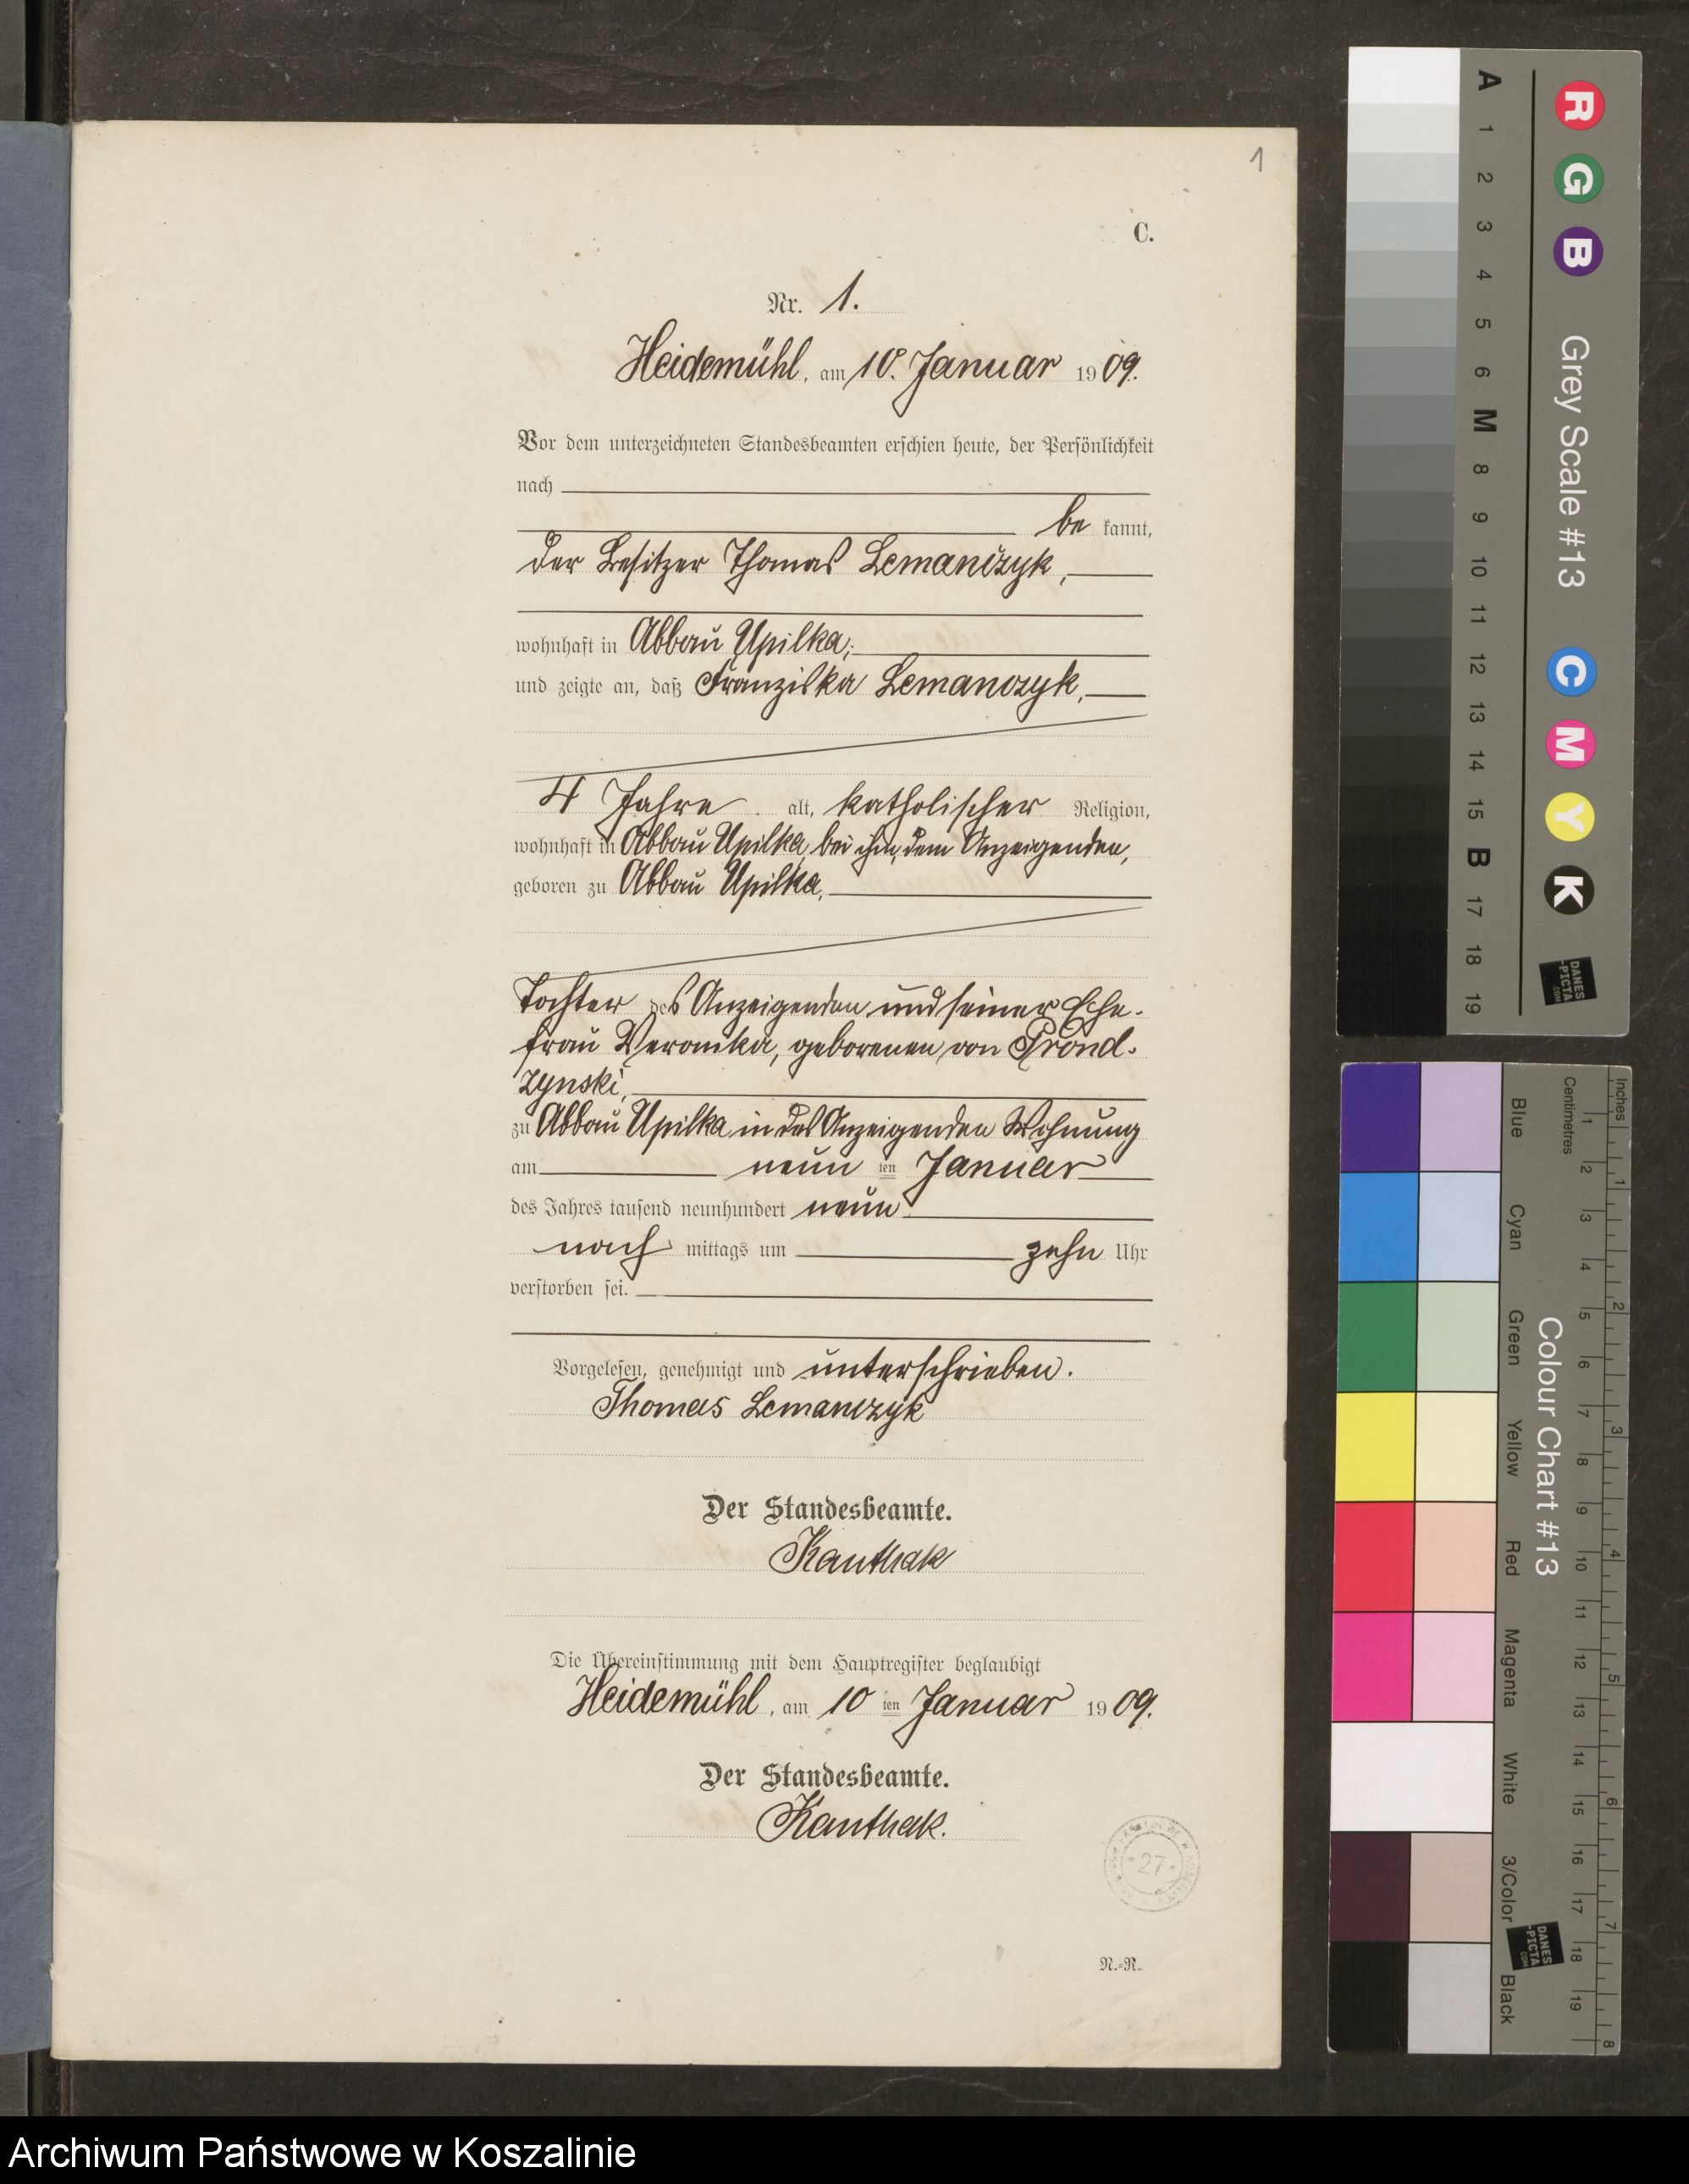 1
C.
Nr. 1.
Heidemühl, am 10. Januar 1909.
Vor dem unterzeichneten Standesbeamten erschien heute, der Persönlichkeit
nach
be kannt,
der Besitzer Thomas Lemanczyk,
wohnhaft in Abbau Upilka,
und zeigte an, daß Franziska Lemanczyk,
4 Jahre alt, katholischer Religion,
wohnhaft in Abbau Upilka, bei ihm, dem Anzeigenden,
geboren zu Abbau Upilka,
Tochter des Anzeigenden und seiner Ehe-
frau Veronika, geborenen von Prond-
zynski,
zu Abbau Upilka in des Anzeigenden Wohnung
am neun ten Januar
des Jahres tausend neunhundert neun
nach mittags um zehn Uhr
verstorben sei.
Vorgelesen, genehmigt und unterschrieben.
Thomas Lemanczyk
Der Standesbeamte.
Kanthak
Die Übereinstimmung mit dem Hauptregister beglaubigt
Heidemühl, am 10 ten Januar 1909.
Der Standesbeamte.
Kanthak.
27
N.-R.
A 1 2 3 4 5 6 M 8 9 10 11 12 13 14 15 B 17 18 19
R G B Grey Scale #13 C M Y K
DANES
-PICTA
.COM
Blue Cyan Green Yellow Red Magenta White 3/Color Black
Colour Chart #13
DANES
-PICTA
.COM
Centimetres 1 2 3 4 5 6 7 8 9 10 11 12 13 14 15 16 17 18 19
Inches 1 2 3 4 5 6 7 8
Archiwum Państwowe w Koszalinie